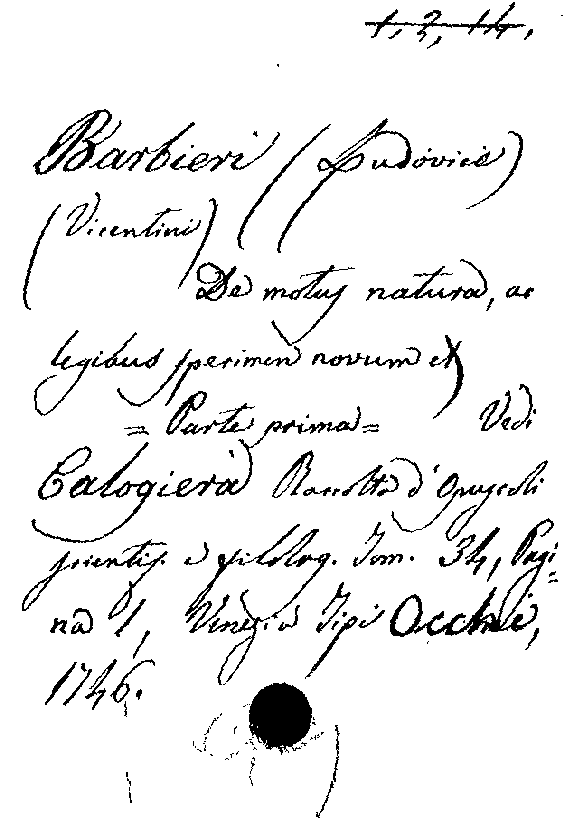 1, 2, 14,
Barbieri (Ludovici)
(Vicentini)
De motus natura, ac
legibus specimen novum et)
= Parte prima = Vedi
Calogierà Raccolta d'Opuscoli
scientif. e filolog. Tom. 34, Pagi=
na 1, Venezia Tipi Occhi,
1746.